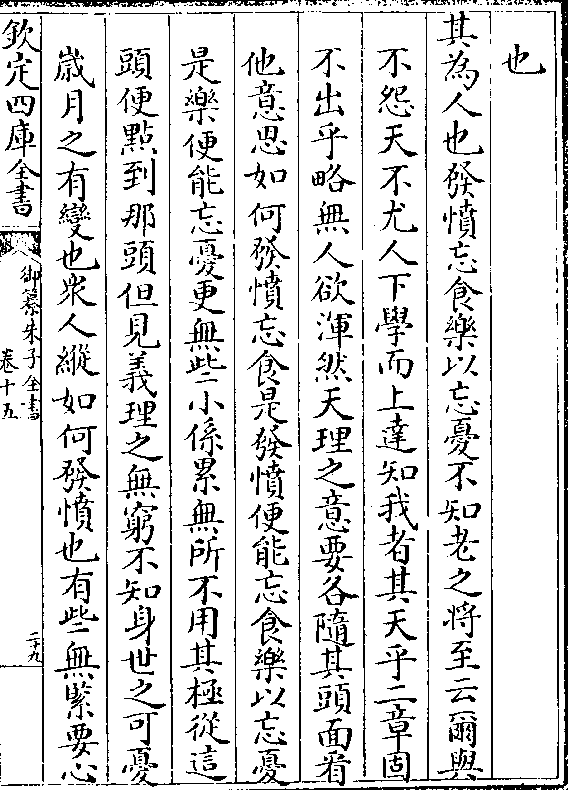 也
其為人也發憤忘食樂以忘憂不知老之將至云爾與
不怨天不尤人下學而上達知我者其天乎二章固
不出乎略無人欲渾然天理之意要各隨其頭面看
他意思如何發憤忘食是發憤便能忘食樂以忘憂
是樂便能忘憂更無些小係累無所不用其極從這
頭便點到那頭但見義理之無窮不知身世之可憂
嵗月之有變也衆人縱如何發憤也有些無緊要心
欽定四庫全書
御纂朱子全書
卷十五
二十九